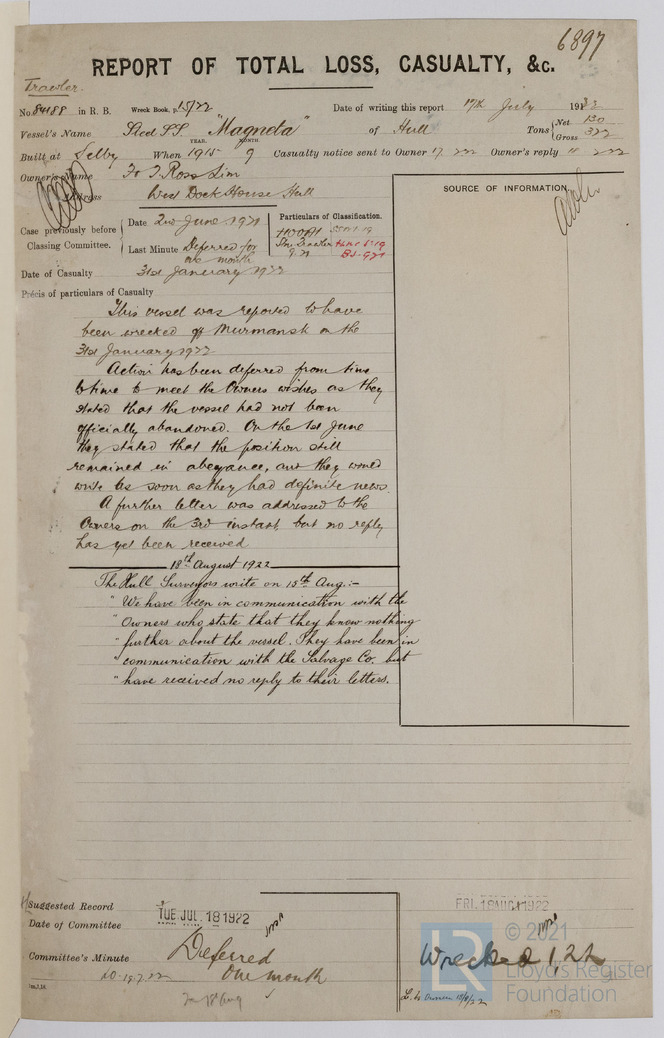 6897
REPORT OF TOTAL LOSS, CASUALTY, &c.
Trawler.
No. 84188 in R. B. Wreck Book, p. 15/22 Date of writing this report 17th July 1922
Vessel's Name Steel "Magneta" of Hull Tons Net 130
Gross 322
YEAR. MONTH.
Built at Selby When 1915 9 Casualty notice sent to Owner Owner's reply
Owner's Name F & T Ross Lim
Address West Dock House Hull
SOURCE OF INFORMATION
Case previously before Classing Committee. Date 2nd June 1922 Particulars of Classification.
Last Minute Deferred for one month
+100A1
Stm Trawler
9.21
Date of Casualty 31st January 1922
Précis of particulars of Casualty
This vessel was reported to have
been wrecked off Murmansk on the
31st January 1922
Action has been deferred from time
to time to meet the Owners wishes as they
stated that the vessel had not been
officially abandoned. On the 1st June
they stated that the position still
remained in abeyance, and they would
write as soon as they had definite news.
A further letter was addressed to the
Owners on the 3rd instant, but no reply
has yet been received
18th August 1922
The Hull Surveyors write on 15th Aug:-
" We have been in communication with the
" Owners who state that they know nothing
" further about the vessel. They have been in
" communication with the Salvage Co. but
" have received no reply to their letters.
Suggested Record
Date of Committee TUE JUL 18 1922 FRI. 18 AUG 1922
Committee's Minute Deferred one month Wrecked 1,22
19.7.22
18 Aug
L. to Owner 18/8/22
© 2021
Lloyd's Register
Foundation